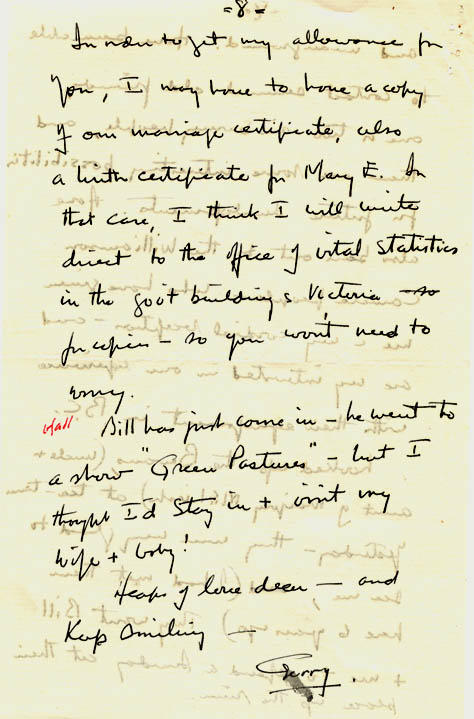 -8-
In order to get my allowance for
you, I may have to have a copy
of our marriage certificate, also
a birth certificate for Mary E. In
that case, I think I will write
direct to the office of vital statistics
in the gov't buildings Victoria - so
for copies - so you won't need to
worry.
Bill has just come in - he went to
a show "Green Pastures" - but I
thought I'd stay in + visit my
wife + baby!
Heaps of love dear - and
Keep Smiling -
Gerry.